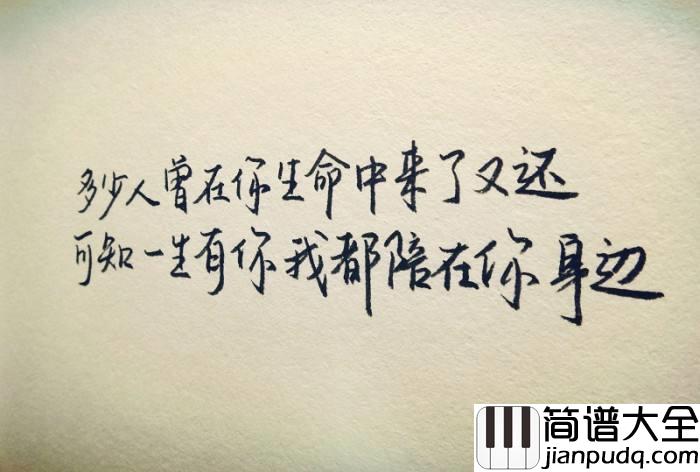 多少人曾在你生命中来了又还
可知一生有你我都陪在你身边
简谱大全
jianpudq.com